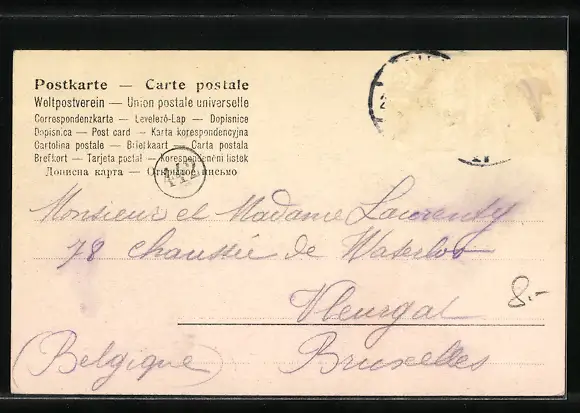 Postkarte — Carte postale
Weltpostverein — Union postale universelle
Correspondenzkarte — Levelező-Lap — Dopisnice
Dopisnica — Post card — Karta korespondencyjna
Cartolina postale — Briefkaart — Carta postala
Brefkort — Tarjeta postal — Korespondenční lístek
Дописна карта — Открытое письмо
442
Monsieur et Madame Laurenty
78 chaussée de Waterloo
Vleurgat
8.-
(Belgique) Bruxelles